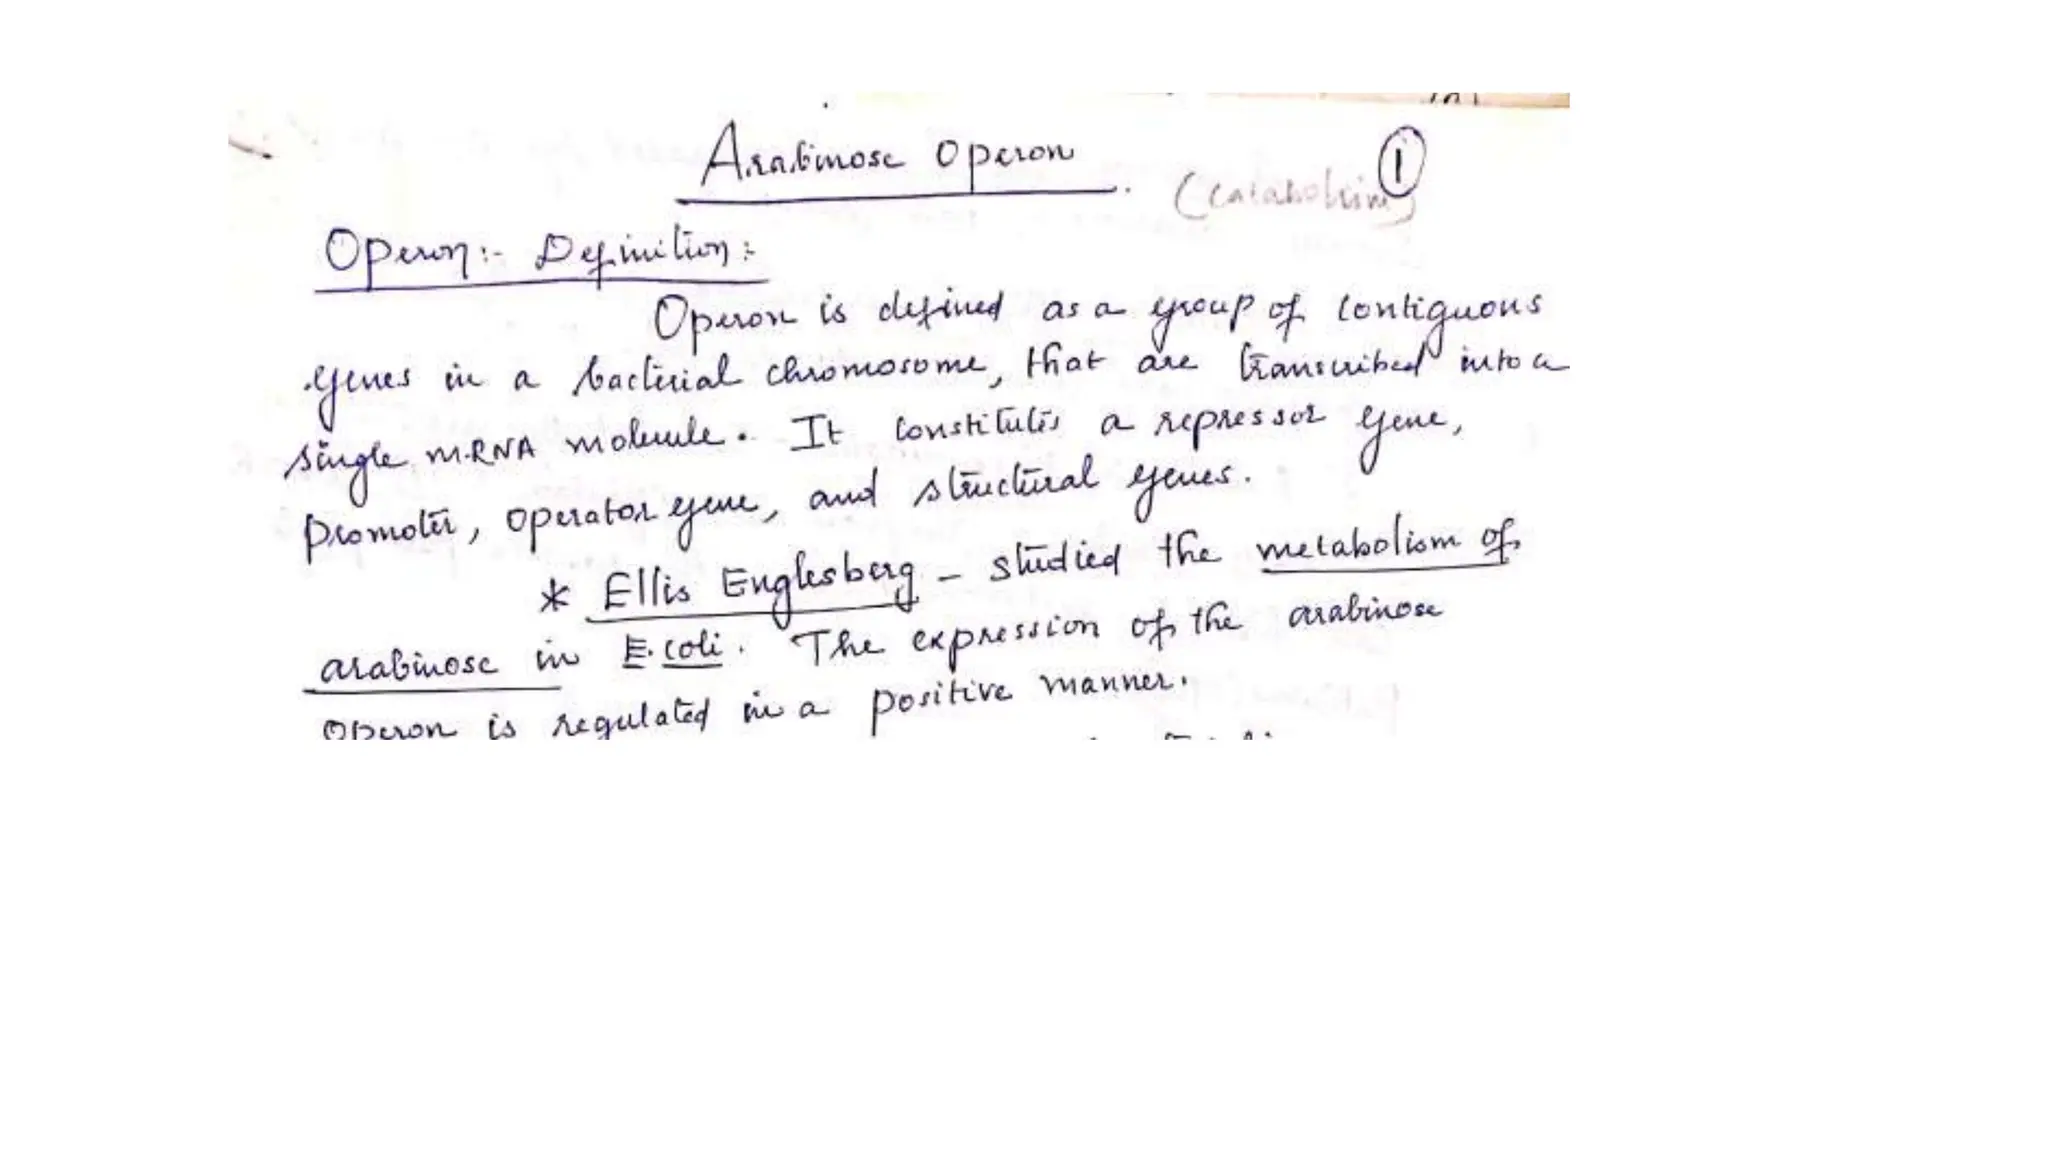 Arabinose Operon.
(Catabolism)
1
Operon:- Definition:-
Operon is defined as a group of contiguous
genes in a bacterial chromosome, that are transcribed into a
single mRNA molecule. It constitutes a repressor gene,
promoter, operator gene, and structural genes.
* Ellis Englesberg - studied the metabolism of
arabinose in E.coli. The expression of the arabinose
operon is regulated in a positive manner.